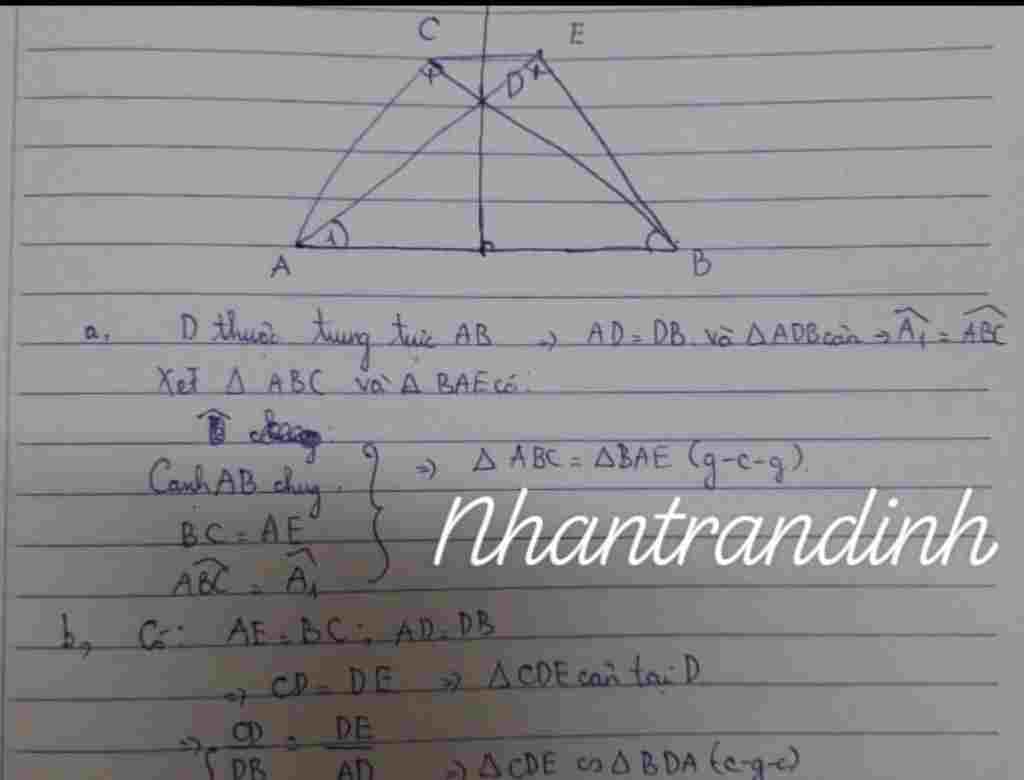 C E
D
1
A B
a, D thuộc trung trực AB => AD = DB và Δ ADB cân => Â₁ = ABC
Xét Δ ABC và Δ BAE có:
Cạnh AB chung
BC = AE
ABC = Â₁
=> Δ ABC = Δ BAE (g-c-g).
Nhantrandinh
b, Có: AE = BC; AD = DB
=> CD = DE => Δ CDE cân tại D
=> CD/DB = DE/AD
=> Δ CDE ∽ Δ BDA (c-g-c)